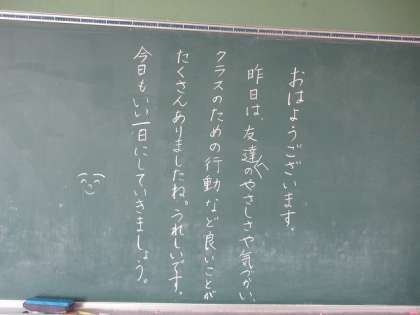 おはようございます。
昨日は、友達のやさしさや気づかい、
クラスのための行動など良いことが
たくさんありましたね。うれしいです。
今日もいい一日にしていきましょう。